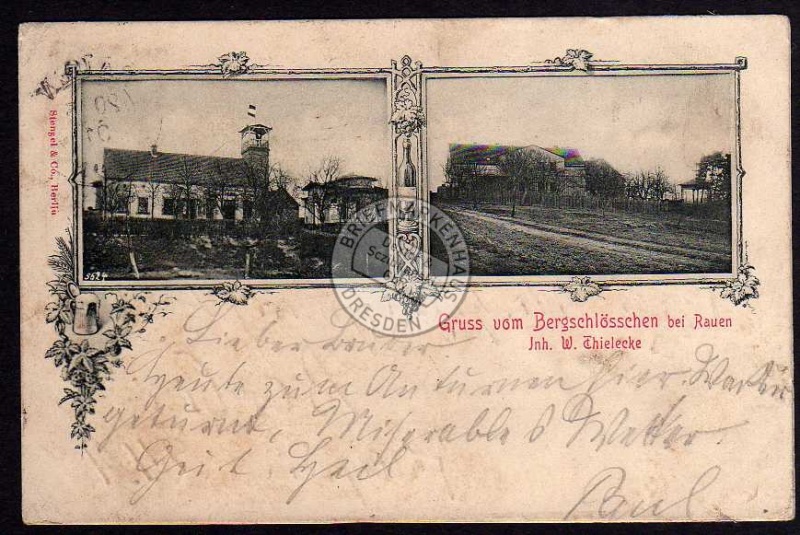 Stengel & Co., Berlin
5524
BRIEFMARKENHAUS
DRESDEN
Gruss vom Bergschlösschen bei Rauen
Inh. W. Thielecke
Lieber Bruder
Heute zum Anturnen hier. Wacker
geturnt, Miserables Wetter.
Gut Heil
Paul